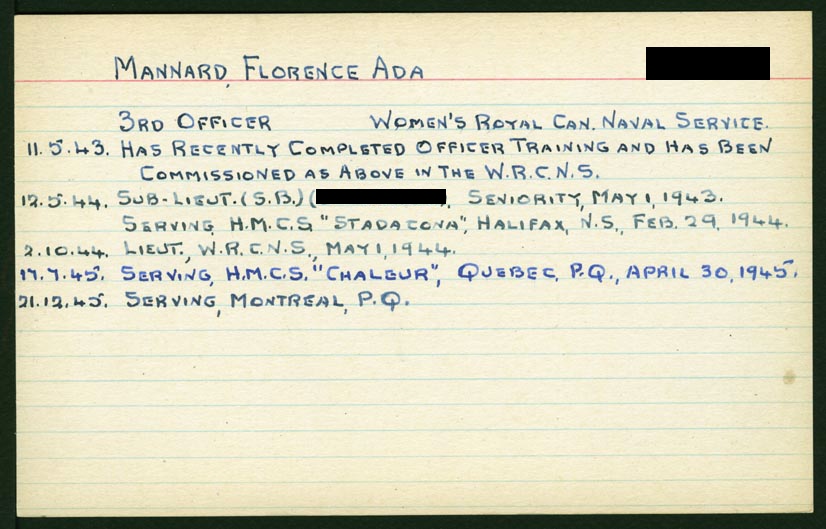 MANNARD, FLORENCE ADA
3RD OFFICER WOMEN'S ROYAL CAN. NAVAL SERVICE.
11.5.43. HAS RECENTLY COMPLETED OFFICER TRAINING AND HAS BEEN
COMMISSIONED AS ABOVE IN THE W.R.C.N.S.
12.5.44. SUB-LIEUT. (S.B.) ( , SENIORITY, MAY 1, 1943.
SERVING, H.M.C.S. "STADACONA", HALIFAX, N.S., FEB. 29, 1944.
2.10.44. LIEUT., W.R.C.N.S., MAY 1, 1944.
17.7.45. SERVING, H.M.C.S. "CHALEUR", QUEBEC, P.Q., APRIL 30, 1945.
21.12.45. SERVING, MONTREAL, P.Q.